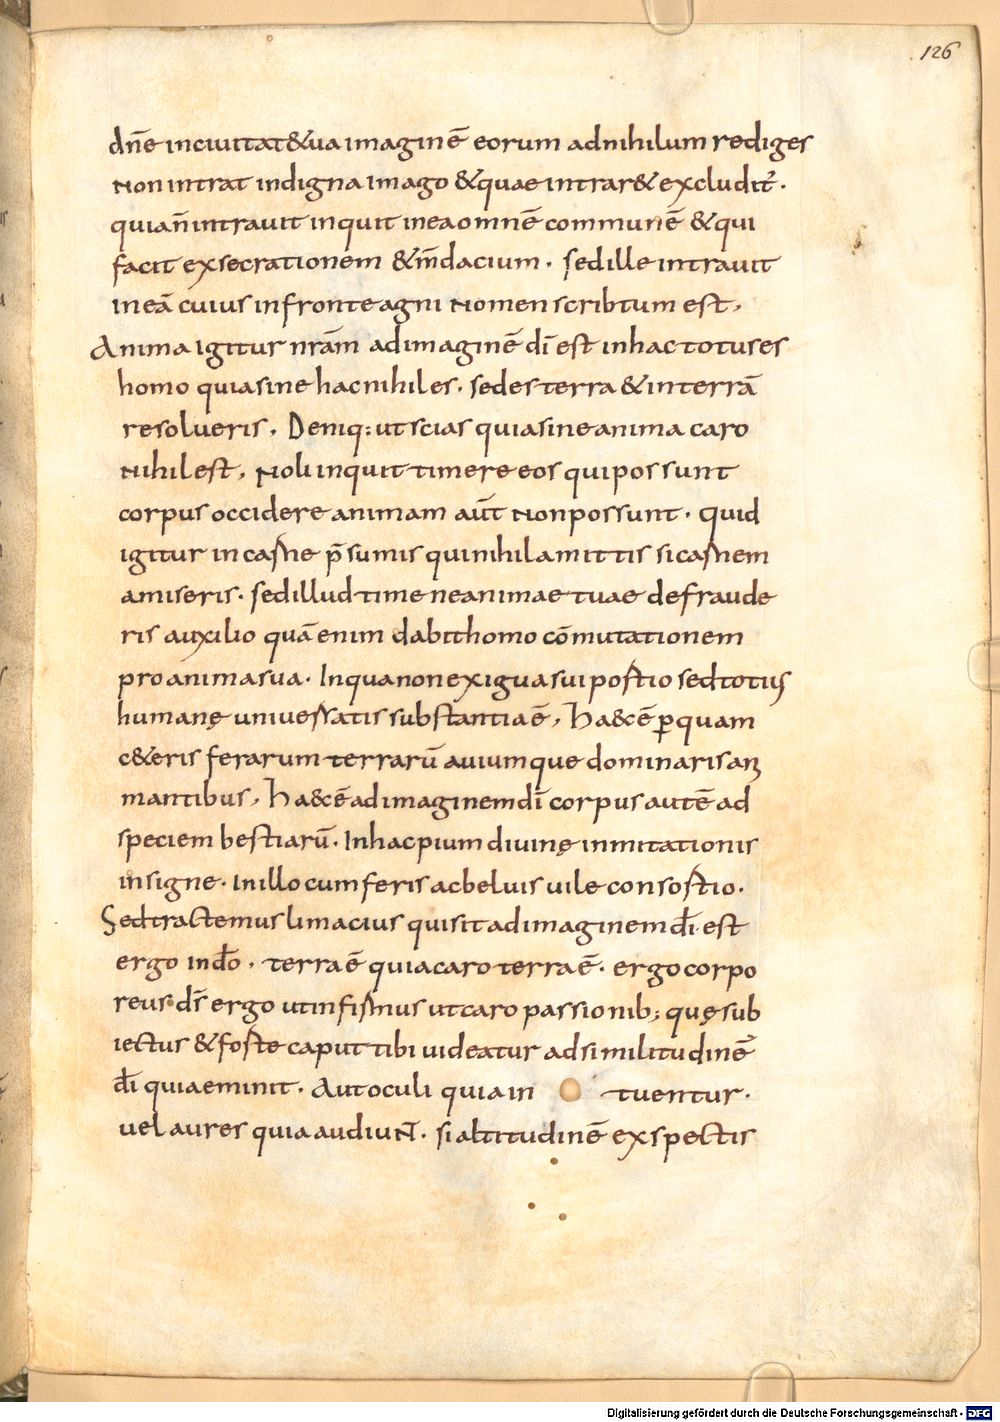 126
dn̄e inciuitat&ua imaginē eorum adnihilum rediges
Non intrat indigna imago &quae intrar& excludit᷑.
quian̄intrauit inquit ineaomnē communē &qui
facit exsecrationem &m̄dacium. sedille intrauit
ineā cuius infronte agni Nomen scribtum est,
Anima igitur nrām adimaginē dī est inhac totus es
homo quiasine hac nihil es. sedes terra &interrā
resolueris. Deniq: ut scias quiasine anima caro
Nihil est, Noli inquit timere eos qui possunt
corpus occidere animam aūt Non possunt. Quid
igitur in carne p̄sumis qui nihil amittis si carnem
amiseris. sedillud time neanimae tuae defraude
ris auxilio quā enim dabit homo cōmutationem
pro anima sua. In qua non exigua sui portio sed totiꝰ
humanę uniuersitatis substantia ē, Haec ē ꝑ quam
c&eris ferarum terrarū auiumque dominaris ani
mantibus, Haec ē ad imaginem dī corpus autē ad
speciem bestiarū. In hac pium diuinę inmitationis
insigne. In illo cum feris ac beluis uile consortio.
Sed tractemus limacius quis sit ad imaginem dī. est
ergo in dō. terra ē quia caro terra ē. ergo corpo
reus ds̄ ergo ut infirmus ut caro passionib; quę sub
iectus & forte caput tibi uideatur ad similitudinē
dī quia eminit. Aut oculi quia in tuentur.
uel aures quia audiuN̄. si altitudinē exspectis
Digitalisierung gefördert durch die Deutsche Forschungsgemeinschaft - DFG